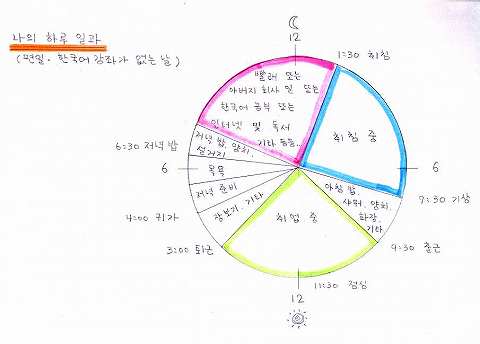 나의 하루 일과
(평일·한국어 강좌가 없는 날)
12
1:30 취침
빨래 또는
아버지 회사 일 또는
한국어 공부 또는
인터넷 및 독서
기타 등등...
취침 중
6:30 저녁 밥
저녁 밥, 양치,
설거지
6
목욕
6
7:30 기상
저녁 준비
장보기, 기타
아침 밥,
샤워, 양치,
화장,
기타
4:00 귀가
취업 중
3:00 퇴근
9:30 출근
11:30 점심
12